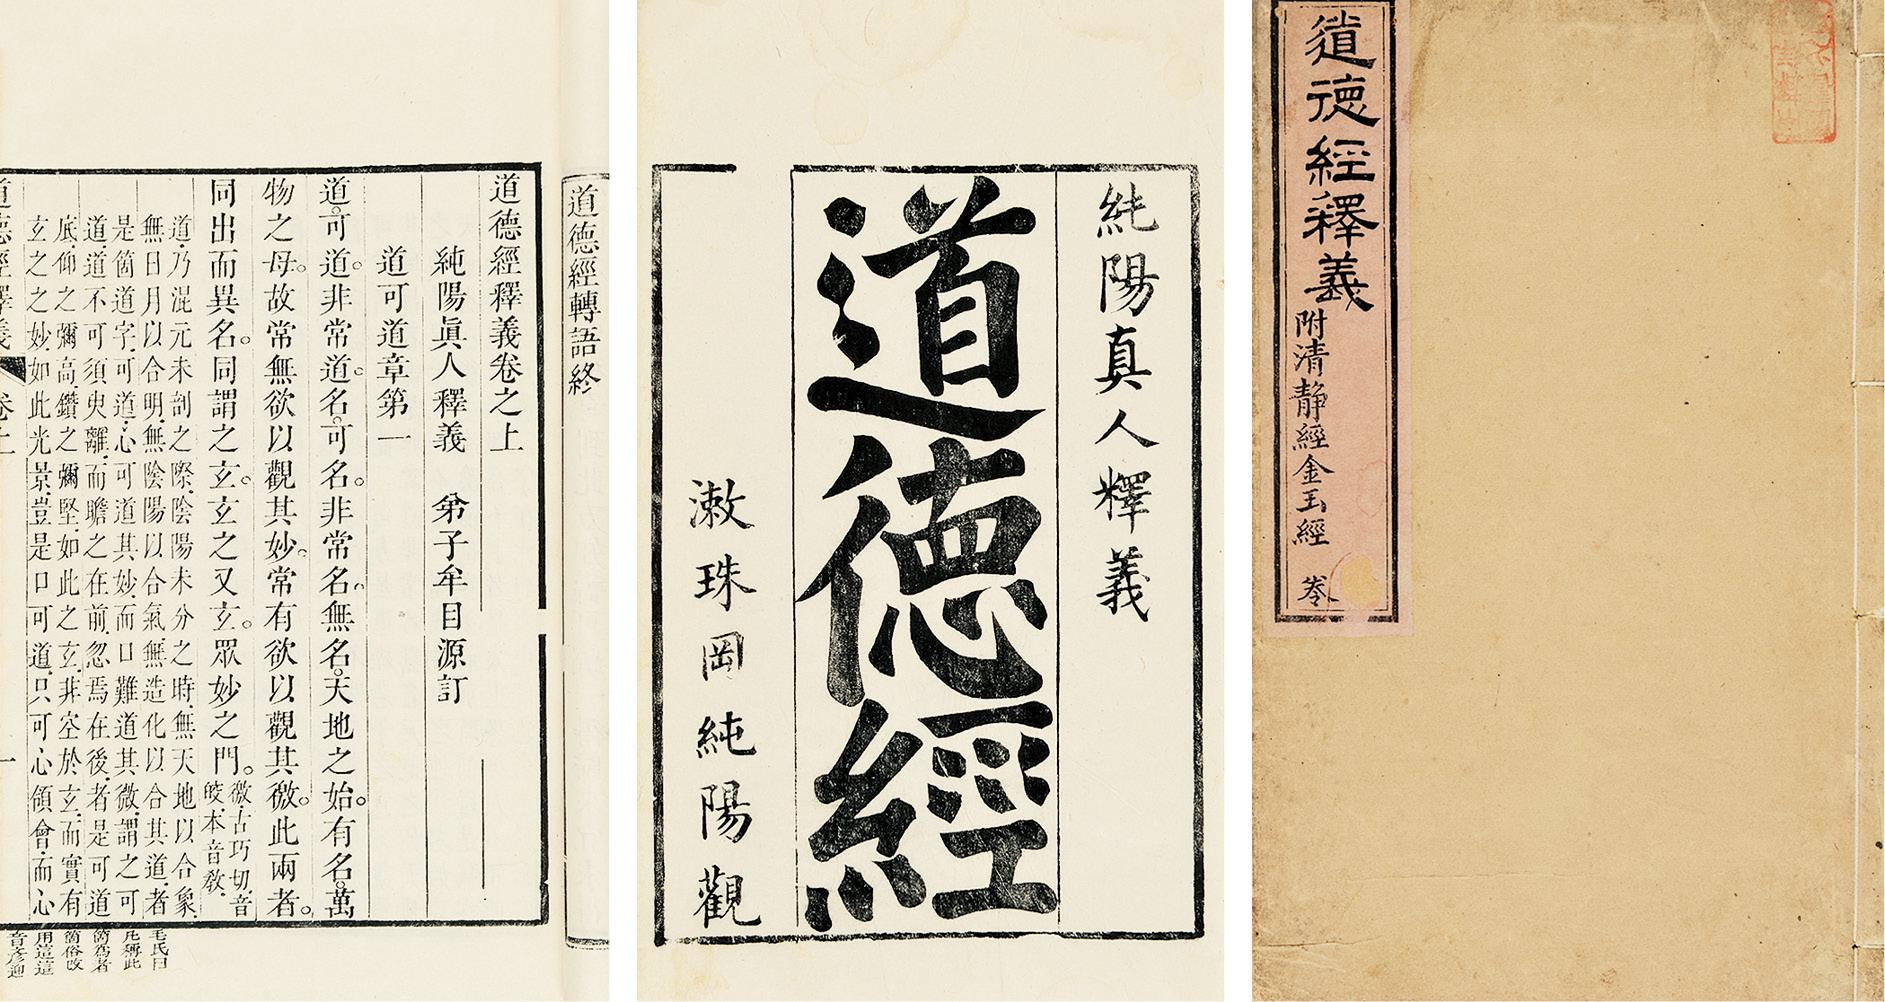 道德經釋義
附清靜經金玉經
純陽真人釋義
道德經
漱珠岡純陽觀
道德經轉語終
道德經釋義卷之上
純陽眞人釋義 弟子牟目源訂
道可道章第一
道。可道。非常道。名。可名。非常名。無名。天地之始。有名。萬
物之母。故常無欲以觀其妙。常有欲以觀其徼。此兩者。
同出而異名。同謂之玄。玄之又玄。眾妙之門。
徼古巧切音
皦本音敎
道乃混元未剖之際陰陽未分之時無天地以合象
無日月以合明無陰陽以合氣無造化以合其道者
是箇道字可道心可道其妙而口難道其微謂之可
道道不可須臾離而瞻之在前忽焉在後者是可道
底仰之彌高鑽之彌堅如此之玄非空於玄而實有
玄之之妙如此光景豈是口可道只可心領會而心
毛氏曰
凡稱此
箇爲者
箇俗改
用這這
音彥迎
道德經釋義 卷上 一